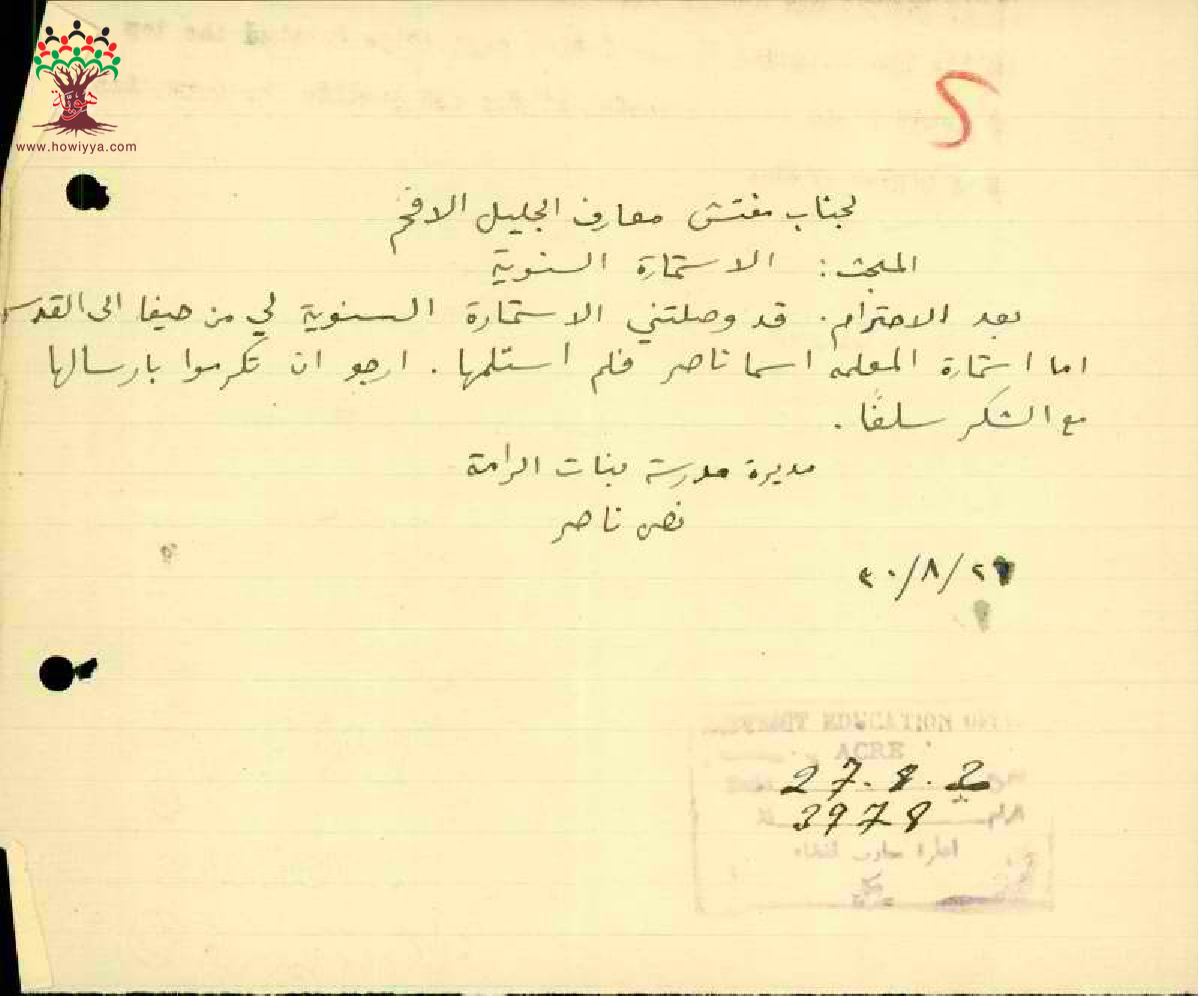 هويّة
www.howiyya.com
5
لجناب مفتش معارف الجليل الافخم
المبحث: الاستمارة السنوية
بعد الاحترام. قد وصلتني الاستمارة السنوية لي من حيفا الى القدس
اما استمارة المعلمه اسما ناصر فلم استلمها. ارجو ان تكرموا بارسالها
مع الشكر سلفًا.
مديرة مدرسة بنات الرامة
ناصر
DISTRICT EDUCATION
ACRE
27.8.2
3978
الرقم